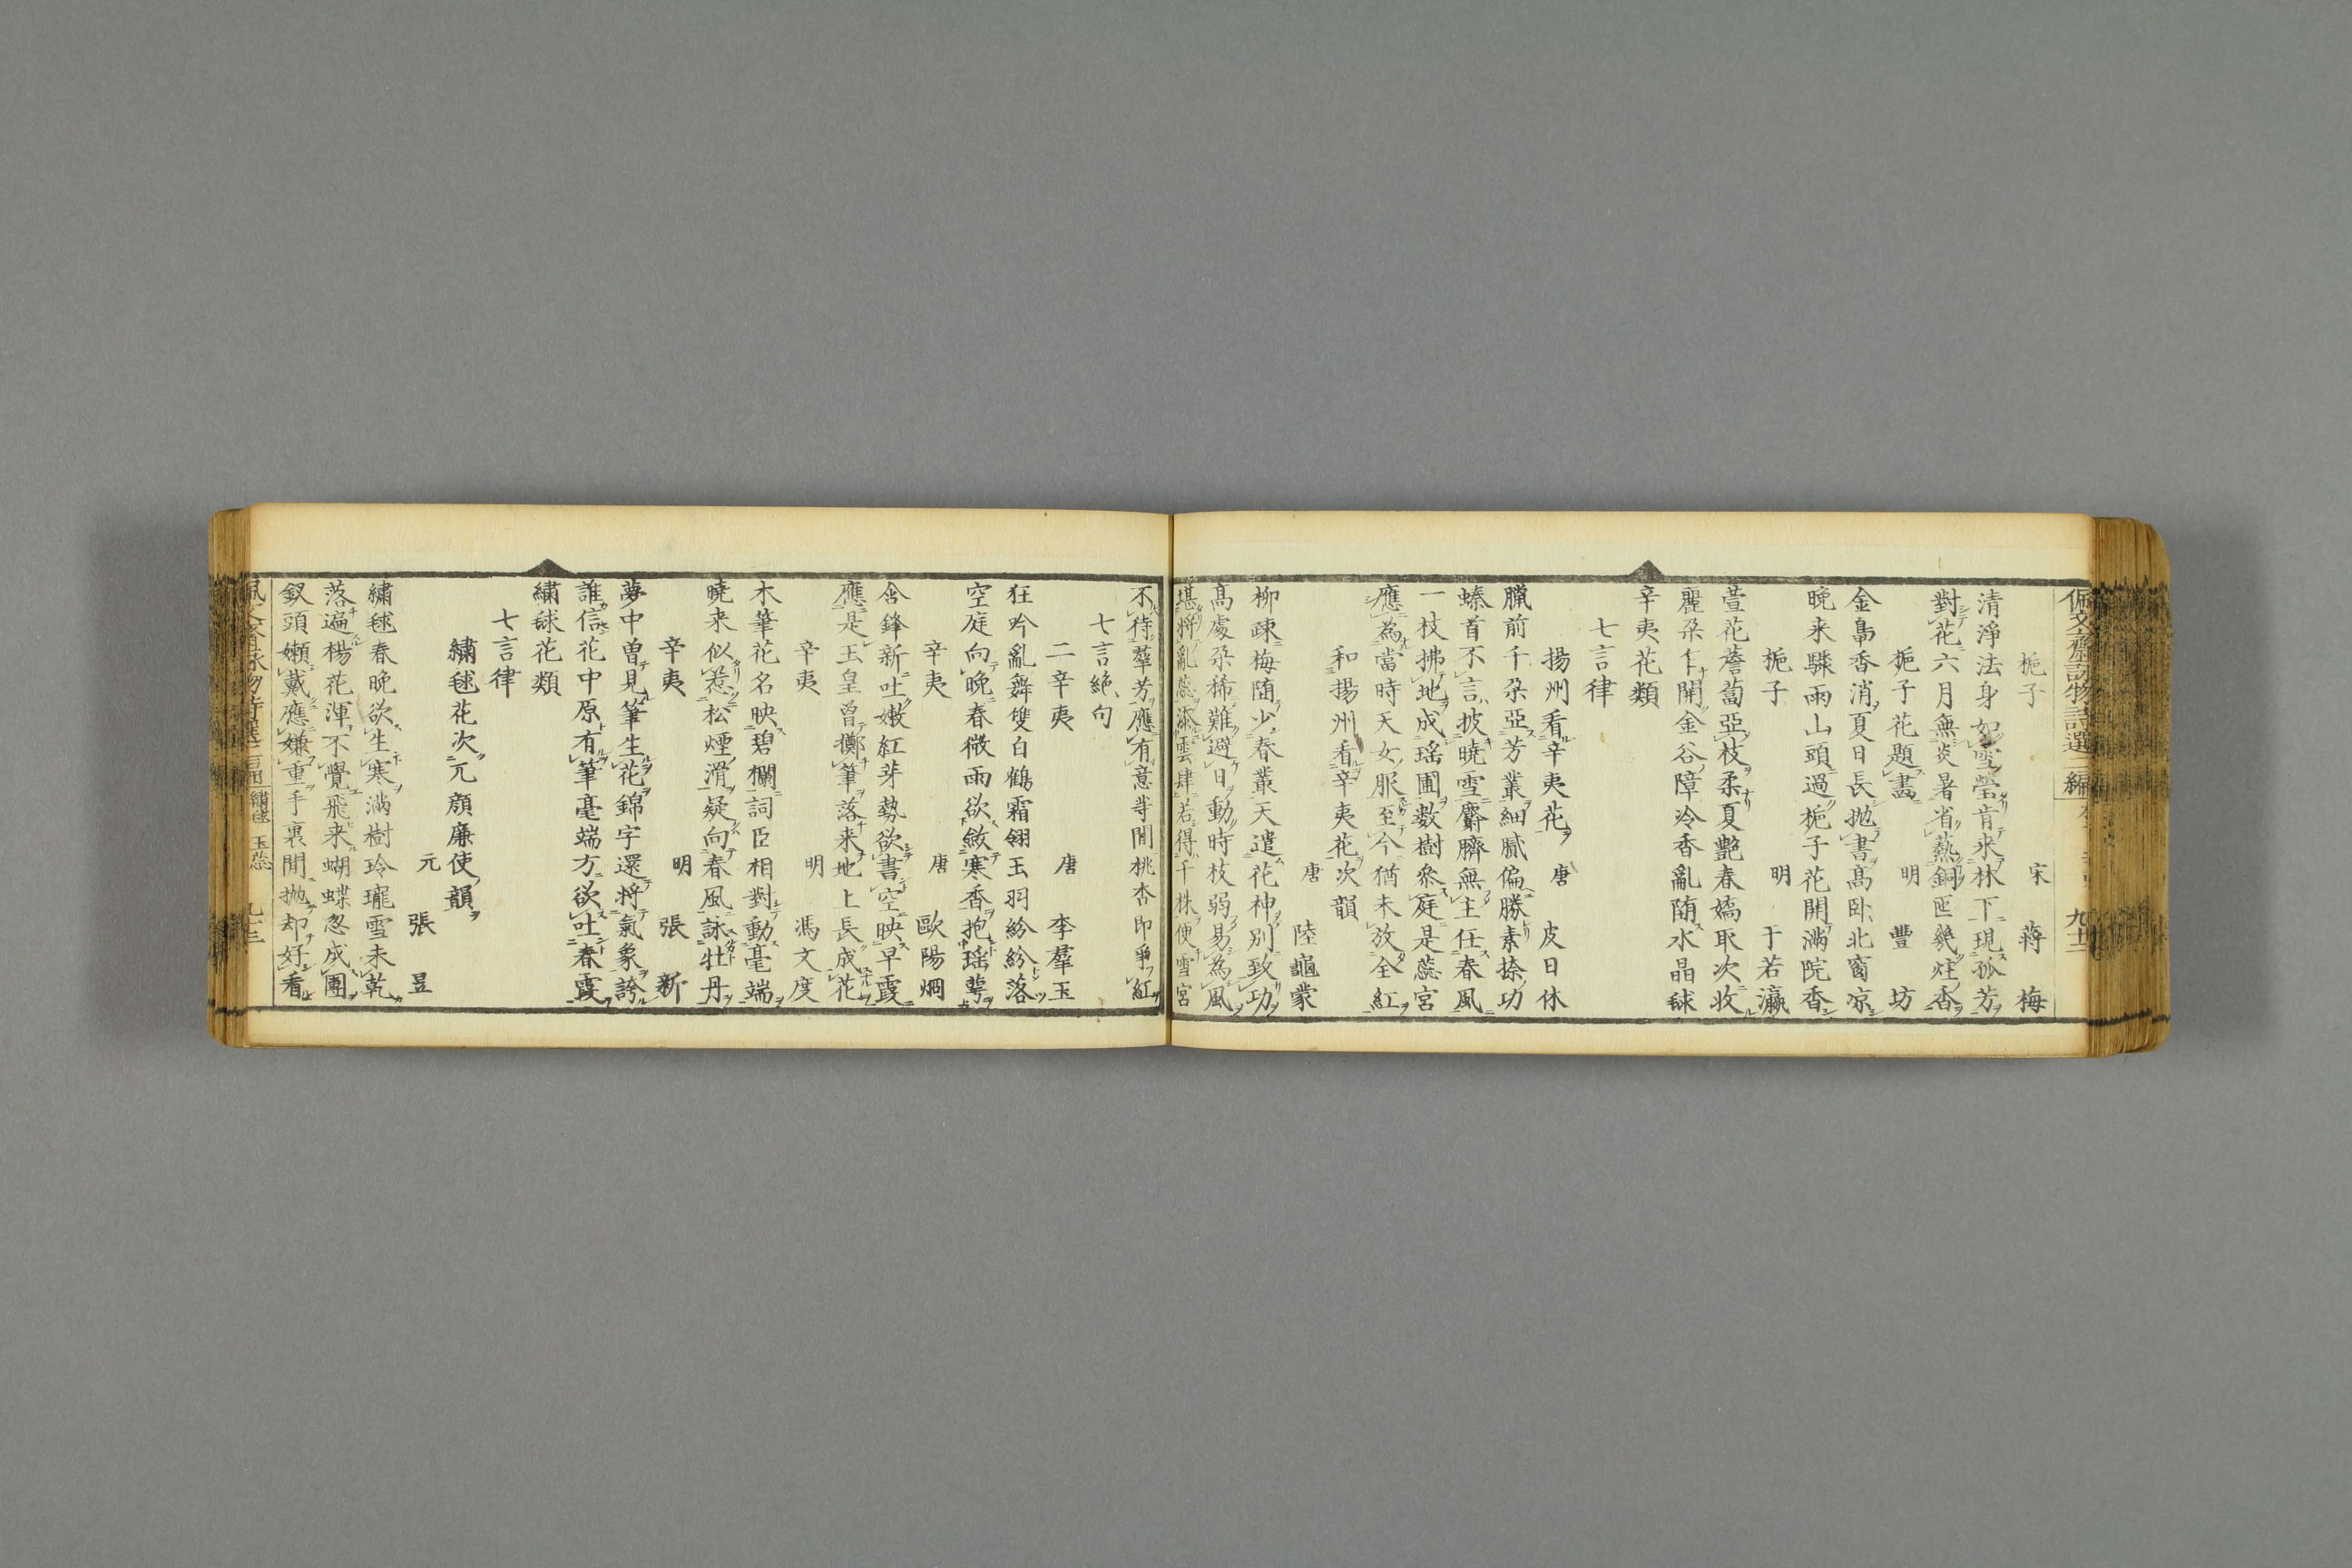 佩文齋詠物詩選二編
九十二
梔子　宋　蒋梅
清淨法身如雪瑩肯来林下現孤芳
對花六月無炎暑省爇銅匜幾炷香
梔子花題畫　明　豐坊
金鳧香消夏日長抛書高卧北窗凉
晚来驟雨山頭過梔子花開満院香
梔子　明　于若瀛
萱花薝蔔亞枝柔夏艷春嬌取次收
麗朶乍開金谷障冷香亂随水晶毬
辛夷花類
七言律
揚州看辛夷花　唐　皮日休
臘前千朶亞芳叢細膩偏勝素捺功
螓首不言披曉雪麝臍無主任春風
一枝拂地成瑶圃數樹叅庭是蕊宮
應為當時天女服至今猶未放全紅
和揚州看辛夷花次韻
唐　陸龜蒙
柳疎梅随少春叢天遣花神別致功
高處朶稀難避日動時枝弱易為風
堪將亂蕊添雲肆若得千株便雪宮
不待羣芳應有意等閒桃杏即爭紅
七言絶句
二辛夷　唐　李羣玉
狂吟亂舞雙白鶴霜翎玉羽紛紛落
空庭向晚春微雨欲斂寒香抱瑶萼
辛夷　唐　歐陽烱
含鋒新吐嫩紅芽勢欲書空映早霞
應是玉皇曾擲筆落来地上長成花
辛夷　明　馮文度
木筆花名映碧欄詞臣相對動毫端
曉来似惹松煙滑疑向春風詠牡丹
辛夷　明　張新
夢中曽見筆生花錦字還將氣象誇
誰信花中原有筆毫端方欲吐春霞
繡毬花類
七言律
繡毬花次亢顔廉使韻
元　張昱
繡毬春晚欲生寒満樹玲瓏雪未乾
落遍楊花渾不覺飛来蝴蝶忽成團
釵頭嬾戴應嫌重手裏閒抛却好看
繡毬　玉蕊
九十三